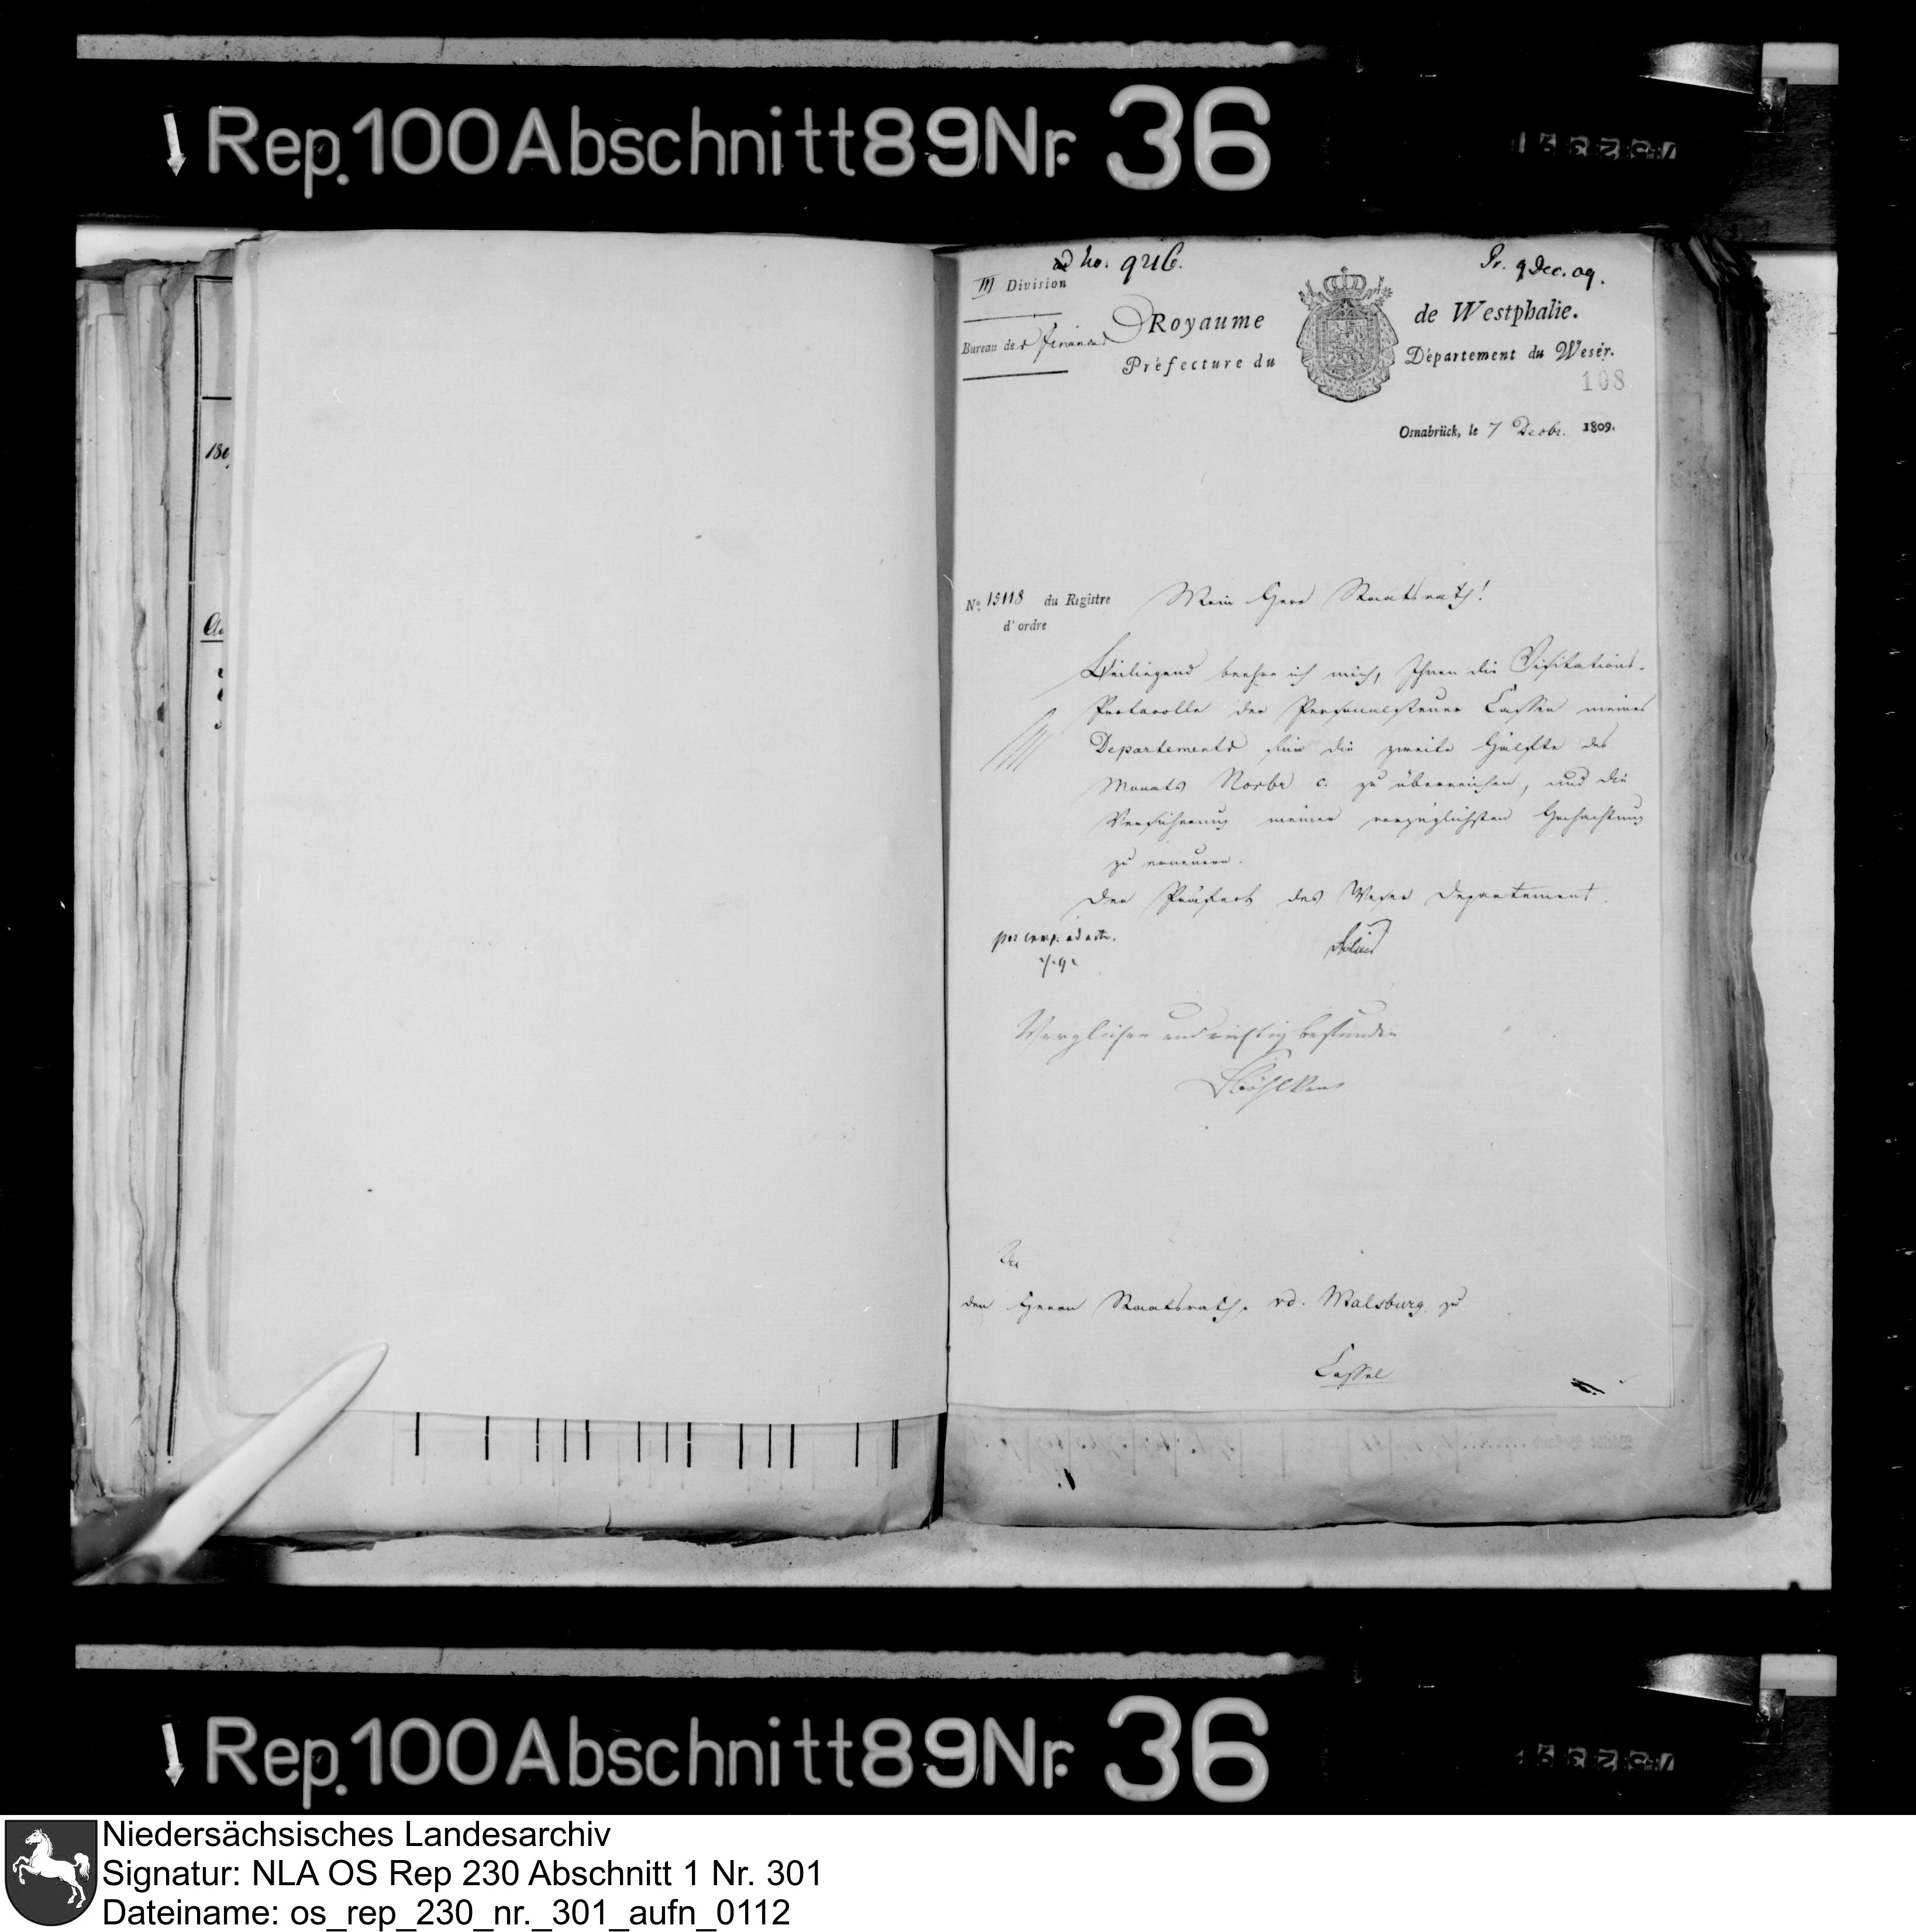 Rep. 100 Abschnitt 89 Nr. 36
ad No. 9216.
Pr. 9 Dec. 09.
III Division
Bureau des finances
Royaume de Westphalie.
Préfecture du Département du Weser.
108
Osnabrück, le 7 Decbr. 1809.
No. 15118 du Registre
d'ordre
Mein Herr Staatsrath!
Beiliegend beehre ich mich, Ihnen die Visitations-
Protocolle der Personalsteuer Cassen meines
Departements für die zweite Hälfte des
Monats Novbr c. zu überreichen, und die
Versicherung meiner vorzüglichsten Hochachtung
zu erneuern.
Der Präfect des Weser Departement.
Verglichen und richtig befunden
An
den Herrn Staatsrath vd. Malsburg zu
Cassel
180
Rep. 100 Abschnitt 89 Nr. 36
Niedersächsisches Landesarchiv
Signatur: NLA OS Rep 230 Abschnitt 1 Nr. 301
Dateiname: os_rep_230_nr._301_aufn_0112